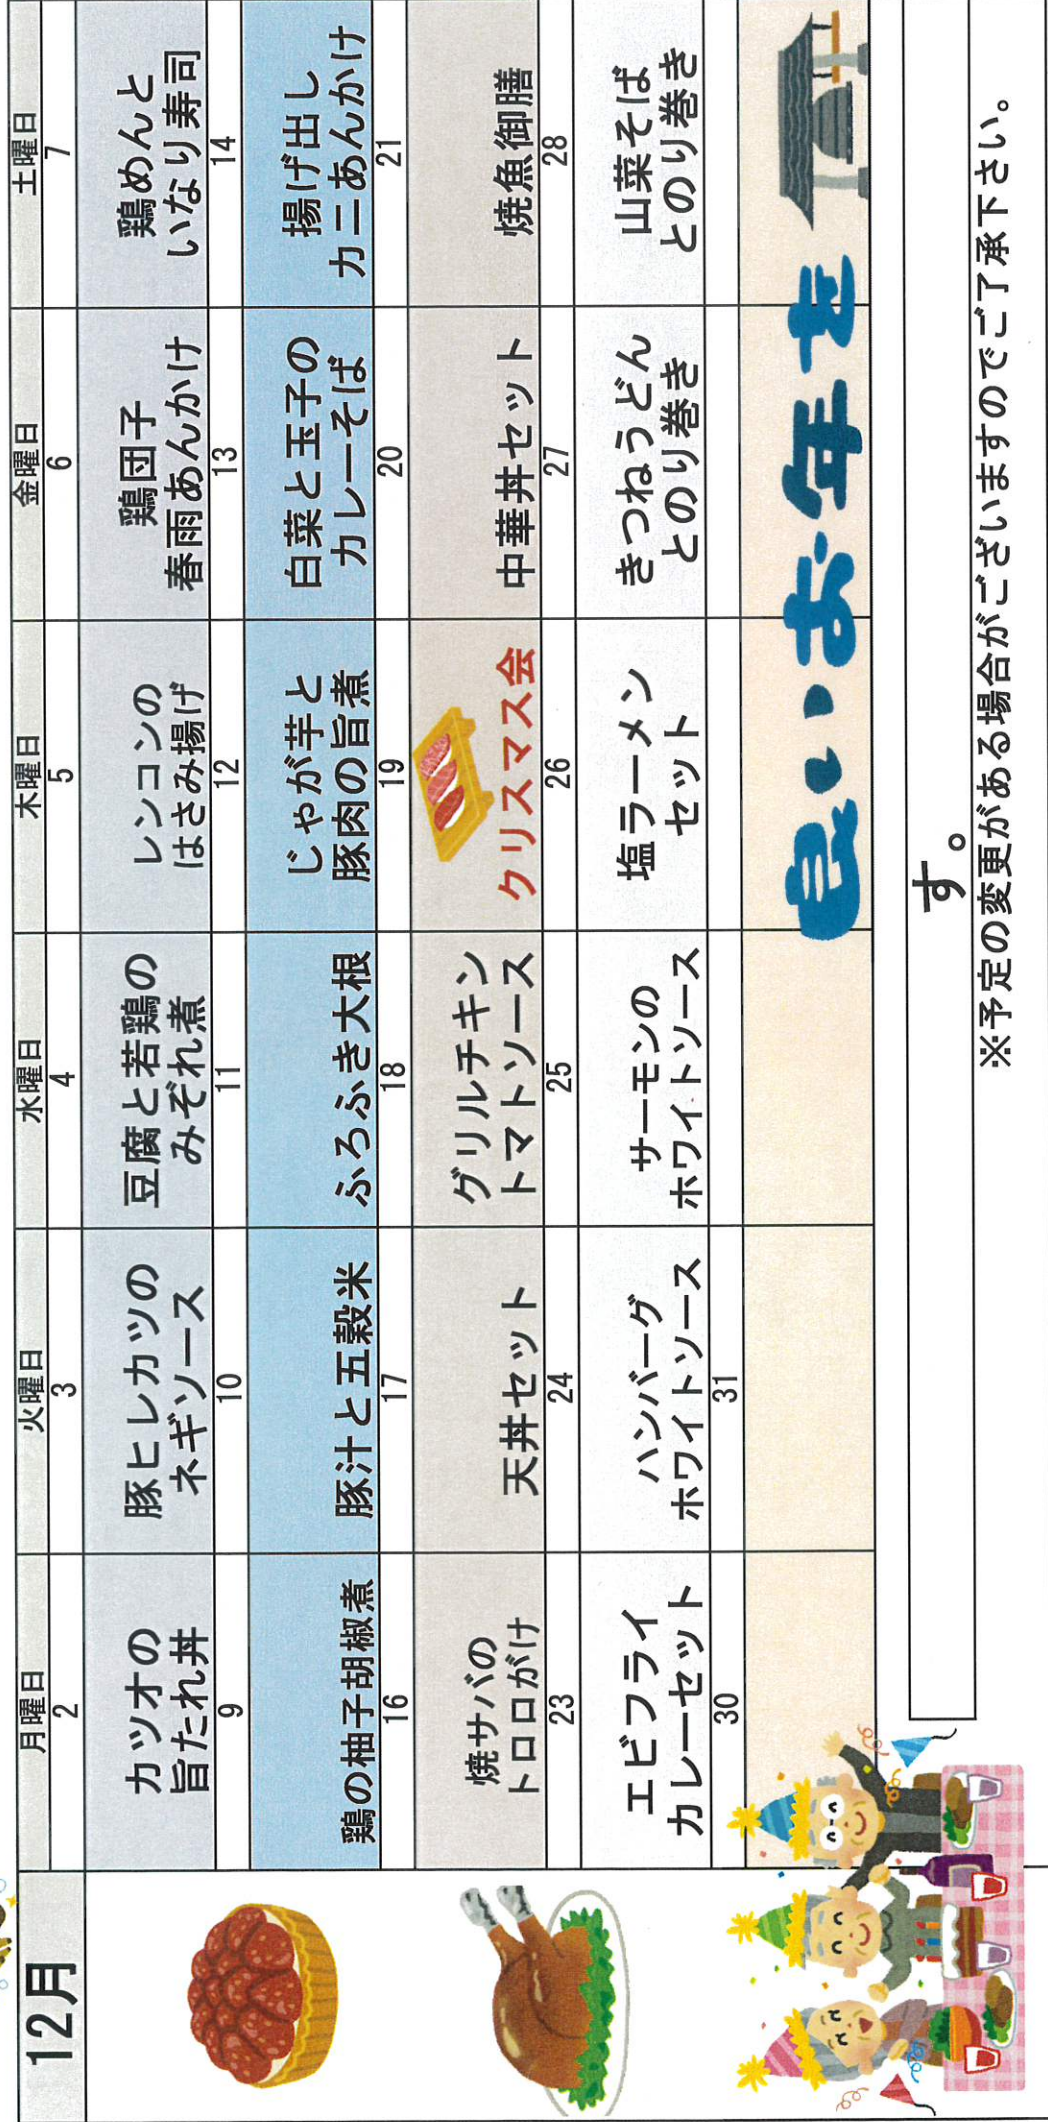 12月
月曜日 火曜日 水曜日 木曜日 金曜日 土曜日
2 3 4 5 6 7
カツオの
旨たれ丼
豚ヒレカツの
ネギソース
豆腐と若鶏の
みぞれ煮
レンコンの
はさみ揚げ
鶏団子
春雨あんかけ
鶏めんと
いなり寿司
9 10 11 12 13 14
鶏の柚子胡椒煮
豚汁と五穀米
ふろふき大根
じゃが芋と
豚肉の旨煮
白菜と玉子の
カレーそば
揚げ出し
カニあんかけ
16 17 18 19 20 21
焼サバの
トロロがけ
天丼セット
グリルチキン
トマトソース
クリスマス会
中華丼セット
焼魚御膳
23 24 25 26 27 28
エビフライ
カレーセット
ハンバーグ
ホワイトソース
サーモンの
ホワイトソース
塩ラーメン
セット
きつねうどん
とのり巻き
山菜そば
とのり巻き
30 31
良いお年を
す。
※予定の変更がある場合がございますのでご了承下さい。